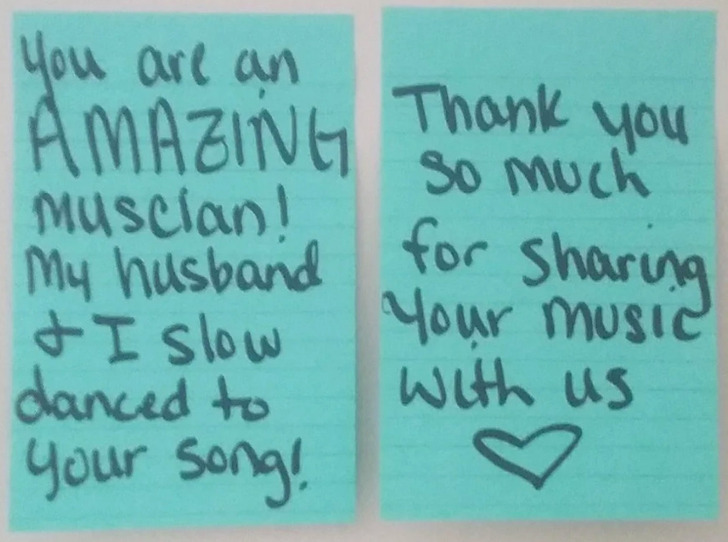 You are an
AMAZING
Muscian!
My husband
& I slow
danced to
your song!
Thank you
so much
for sharing
your music
with us